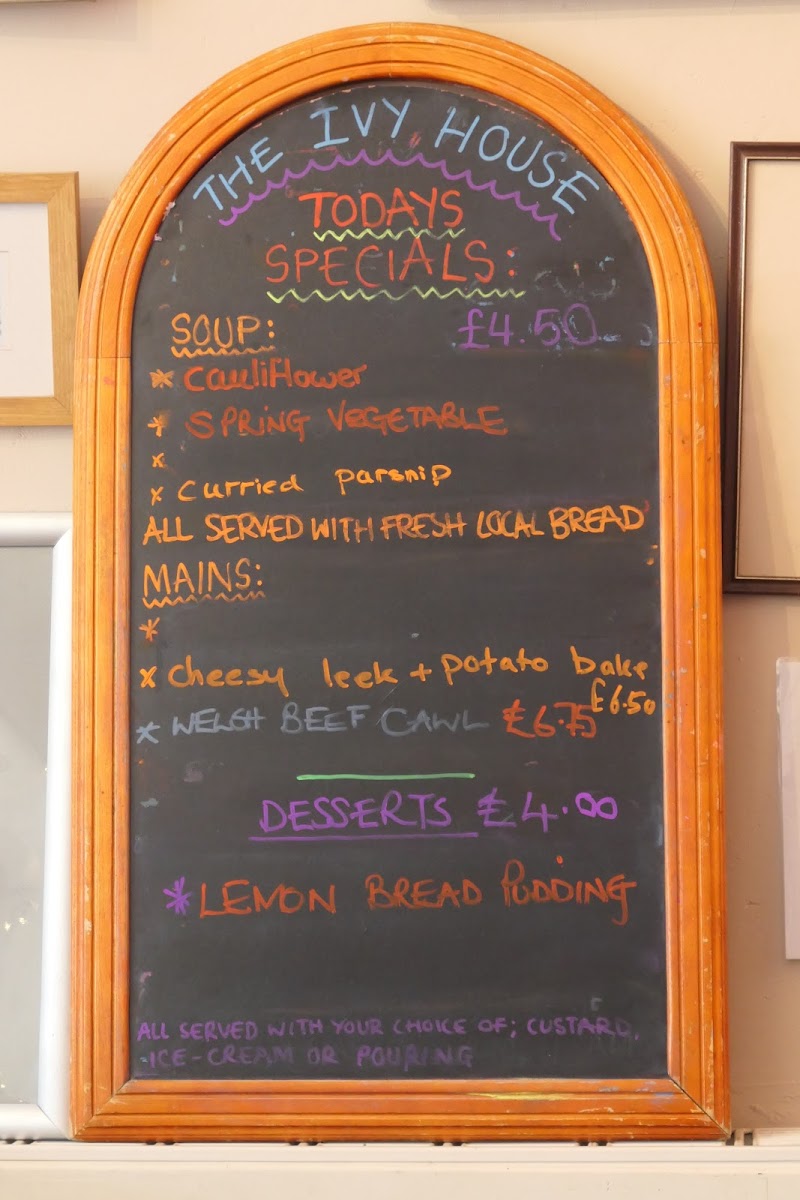 THE IVY HOUSE
TODAYS
SPECIALS:
SOUP: £4.50
* Cauliflower
* SPRING VEGETABLE
x
x Curried parsnip
ALL SERVED WITH FRESH LOCAL BREAD
MAINS:
*
x Cheesy leek + potato bake
£6.50
* WELSH BEEF CAWL £6.75
DESSERTS £4.00
* LEMON BREAD PUDDING
ALL SERVED WITH YOUR CHOICE OF; CUSTARD,
ICE-CREAM OR POURING